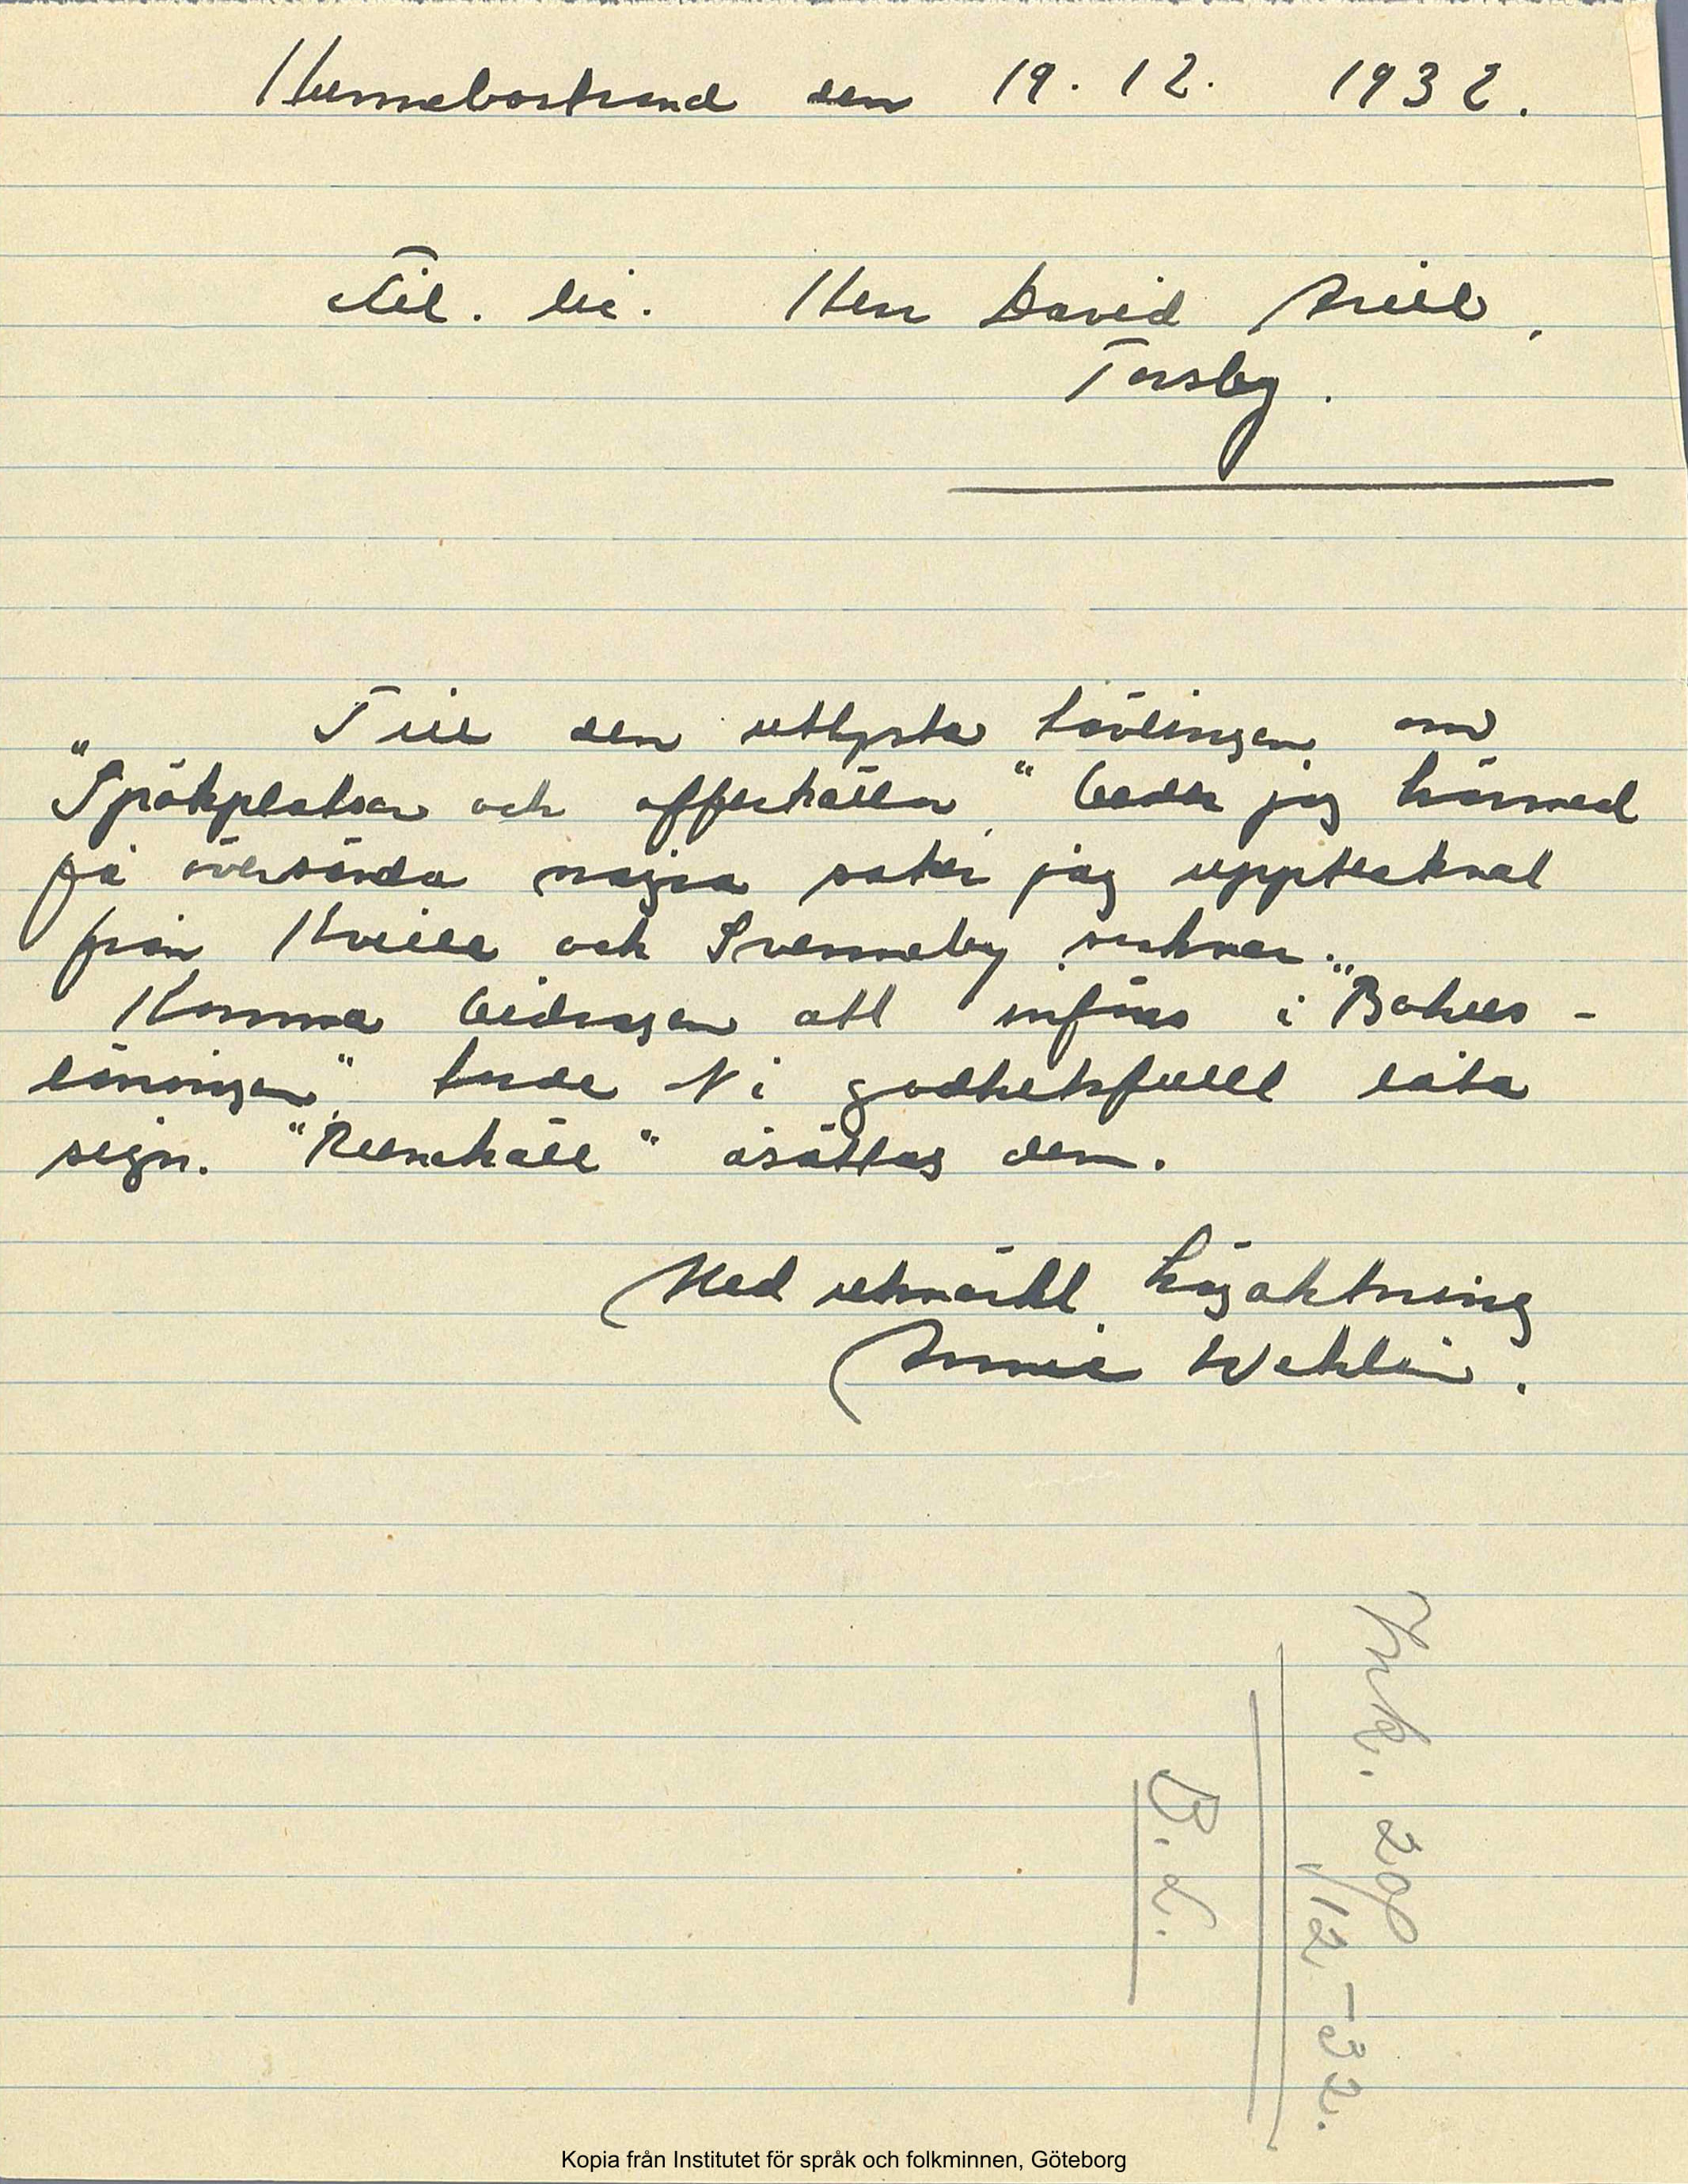 Hunnebostrand den 19. 12. 1932.
Fil. lic. Herr David Arill,
Torsby.
Till den utlysta tävlingen om
"Spökplatser och offerkällor" beder jag härmed
få översända några saker jag upptecknat
från Kville och Svenneby socknar.
Komma bidragen att införas i "Bohus-
läningen" torde Ni godhetsfullt låta
sign. "Kurckäll" åsättas dem.
Med utmärkt högaktning
Annie Wehlin.
Ink. 20/12 -32.
B. L.
Kopia från Institutet för språk och folkminnen, Göteborg